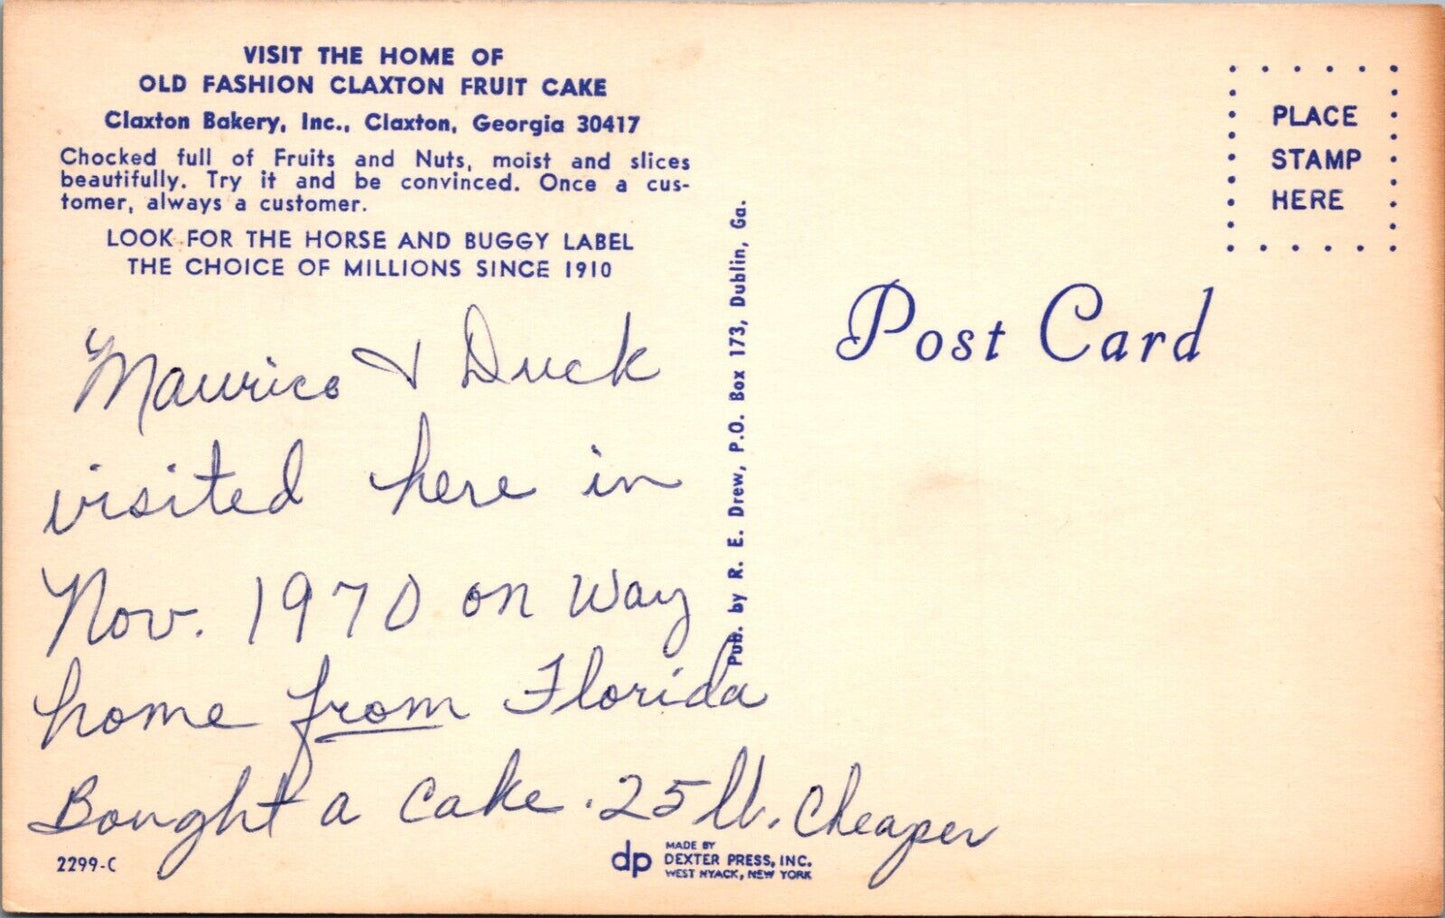 VISIT THE HOME OF
OLD FASHION CLAXTON FRUIT CAKE
Claxton Bakery, Inc., Claxton, Georgia 30417
Chocked full of Fruits and Nuts, moist and slices
beautifully. Try it and be convinced. Once a cus-
tomer, always a customer.
LOOK FOR THE HORSE AND BUGGY LABEL
THE CHOICE OF MILLIONS SINCE 1910
Maurice & Duck
visited here in
Nov. 1970 on way
home from Florida
Bought a cake .25 lb. Cheaper
2299-C
Pub. by R. E. Drew, P.O. Box 173, Dublin, Ga.
dp
MADE BY
DEXTER PRESS, INC.
WEST NYACK, NEW YORK
Post Card
PLACE
STAMP
HERE